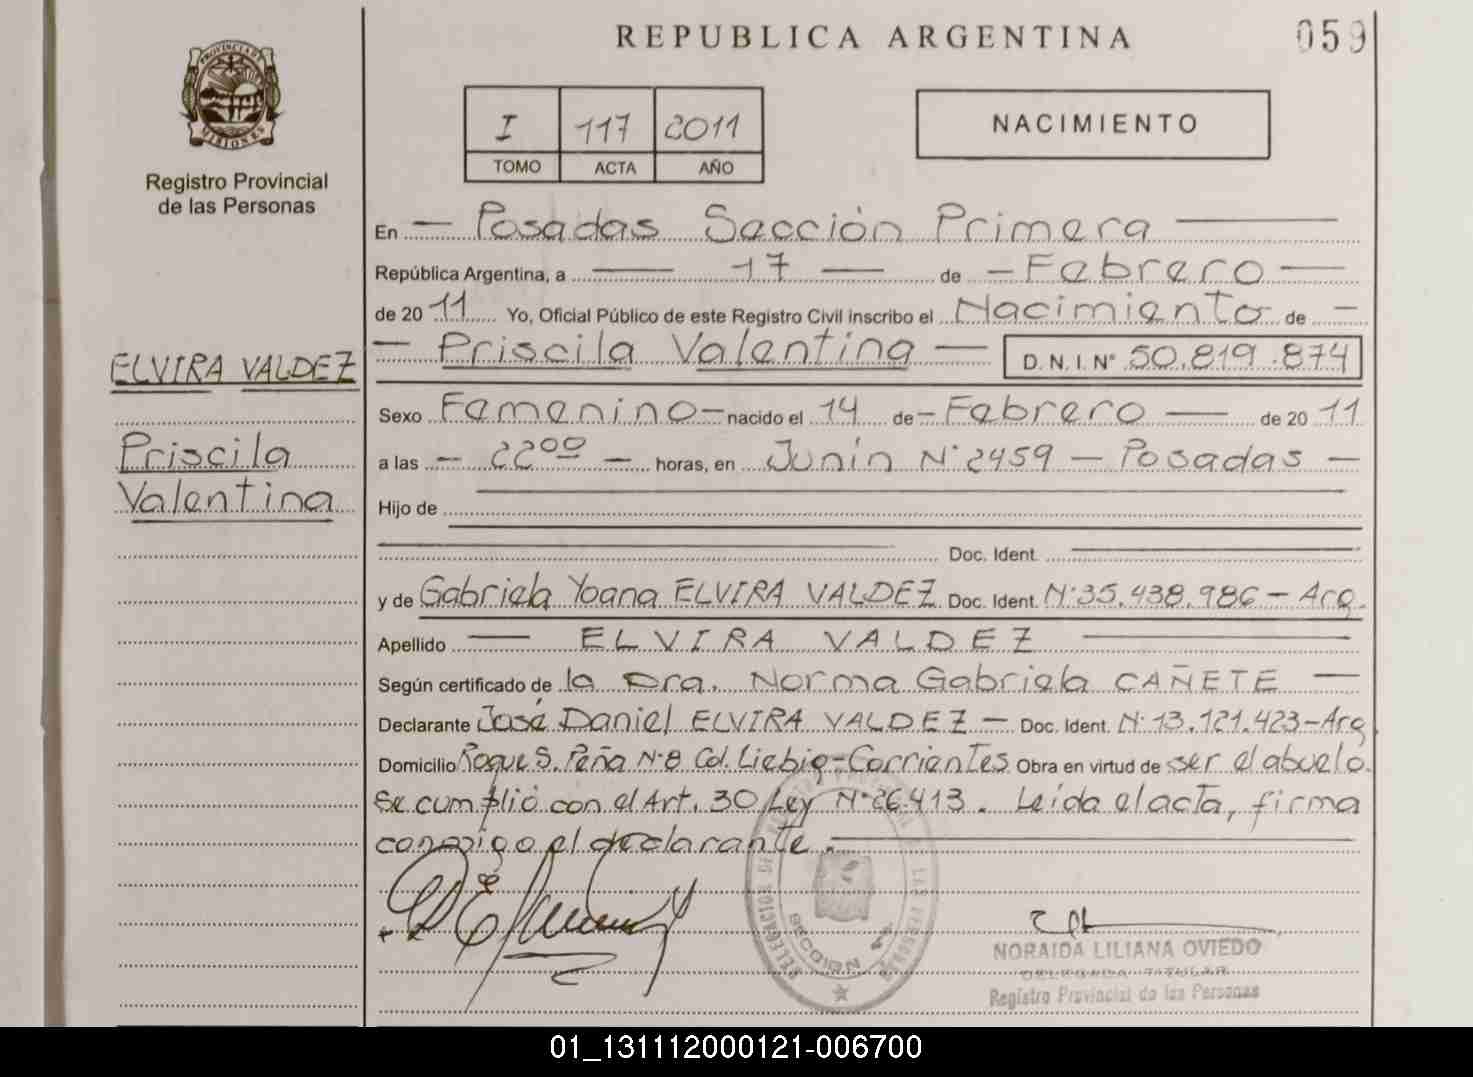 REPUBLICA ARGENTINA
059
PROVINCIA DE MISIONES
Registro Provincial
de las Personas
I 117 2011
TOMO ACTA AÑO
NACIMIENTO
En — Posadas Sección Primera —
República Argentina, a — 17 — de — Febrero —
de 2011 Yo, Oficial Público de este Registro Civil inscribo el Nacimiento de —
— Priscila Valentina — D.N.I. N° 50.819.874
ELVIRA VALDEZ
Priscila
Valentina
Sexo Femenino — nacido el 14 de — Febrero — de 2011
a las — 22 00 — horas, en Junín N° 2459 — Posadas —
Hijo de
Doc. Ident.
y de Gabriela Yoana ELVIRA VALDEZ Doc. Ident. N° 35.438.986 — Arg.
Apellido — ELVIRA VALDEZ —
Según certificado de la Dra. Norma Gabriela CAÑETE —
Declarante José Daniel ELVIRA VALDEZ — Doc. Ident. N° 13.121.423 — Arg
Domicilio Roque S. Peña N° 8 Col. Liebig — Corrientes Obra en virtud de ser el abuelo.
Se cumplió con el Art. 30 Ley N° 26.413. Leída el acta, firma
conmigo el declarante. —
SECCION 1a
NORAIDA LILIANA OVIEDO
DELEGADA TITULAR
Registro Provincial de las Personas
01_131112000121-006700